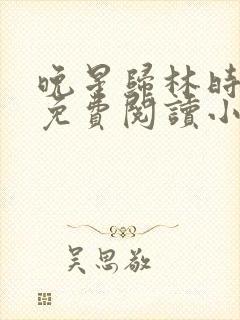 晚星歸林時
免費閱讀小
吴思敬